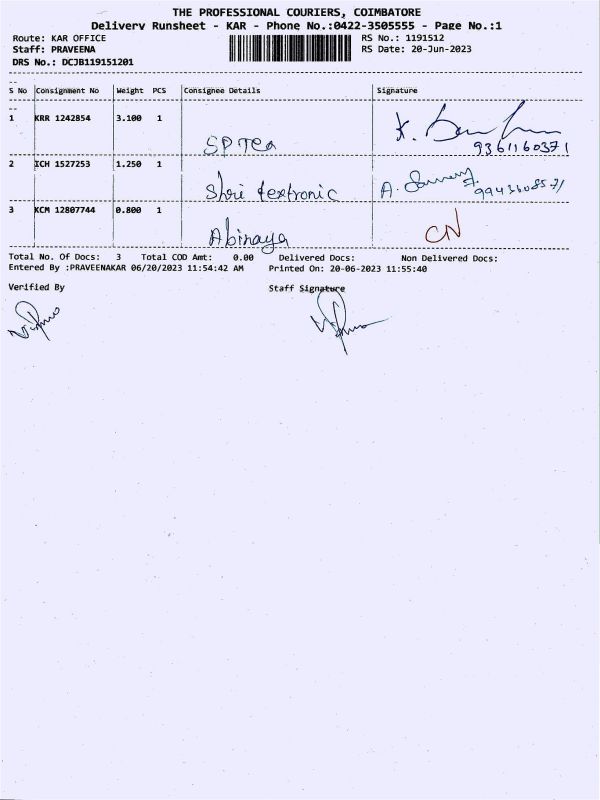 THE PROFESSIONAL COURIERS, COIMBATORE
Delivery Runsheet - KAR - Phone No.:0422-3505555 - Page No.:1
Route: KAR OFFICE RS No.: 1191512
Staff: PRAVEENA RS Date: 20-Jun-2023
DRS No.: DCJB119151201
S No Consignment No Weight PCS Consignee Details Signature
1 KRR 1242854 3.100 1
SP Tea 9361160371
2 ICH 1527253 1.250 1
Shri textronic A.
3 KCM 12807744 0.800 1
Abinaya CN
Total No. Of Docs: 3 Total COD Amt: 0.00 Delivered Docs: Non Delivered Docs:
Entered By :PRAVEENAKAR 06/20/2023 11:54:42 AM Printed On: 20-06-2023 11:55:40
Verified By Staff Signature